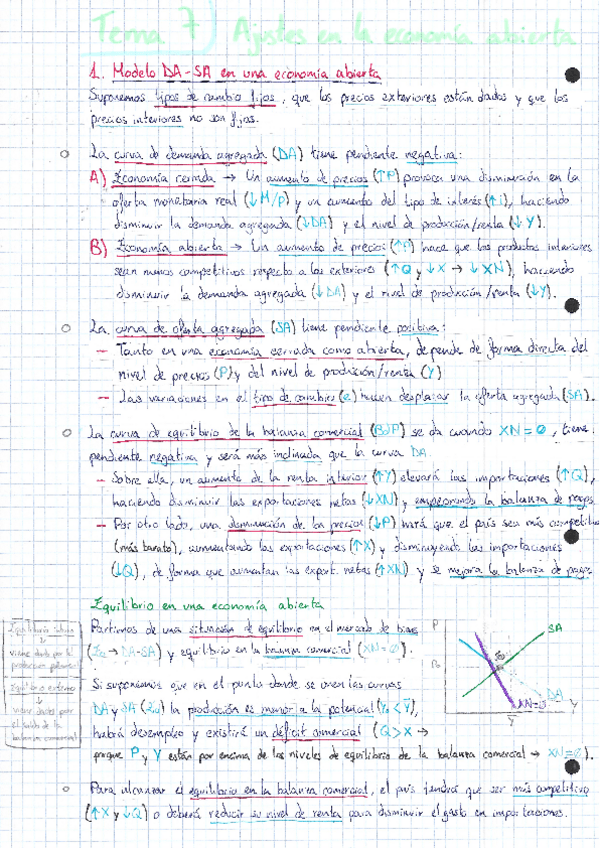 Tema 7) Ajustes en la economía abierta
1. Modelo DA-SA en una economía abierta
Suponemos tipos de cambio fijos, que los precios exteriores están dados y que los
precios interiores no son fijos.
La curva de demanda agregada (DA) tiene pendiente negativa:
A) Economía cerrada → Un aumento de precios (↑P) provoca una disminución en la
oferta monetaria real (↓M/P) y un aumento del tipo de interés (↑i), haciendo
disminuir la demanda agregada (↓DA) y el nivel de producción/renta (↓Y).
B) Economía abierta → Un aumento de precios (↑i) hace que los productos interiores
sean menos competitivos respecto a los exteriores (↑Q y ↓X → ↓XN), haciendo
disminuir la demanda agregada (↓DA) y el nivel de producción/renta (↓Y).
La curva de oferta agregada (SA) tiene pendiente positiva:
— Tanto en una economía cerrada como abierta, depende de forma directa del
nivel de precios (P) y del nivel de producción/renta (Y)
— Las variaciones en el tipo de cambio (e) hacen desplazar la oferta agregada (SA).
La curva de equilibrio de la balanza comercial (BdP) se da cuando XN=0, tiene
pendiente negativa y será más inclinada que la curva DA.
— Sobre ella, un aumento de la renta interior (↑Y) elevará las importaciones (↑Q),
haciendo disminuir las exportaciones netas (↓XN) y empeorando la balanza de pagos.
— Por otro lado, una disminución de los precios (↓P) hará que el país sea más competitivo
(más barato), aumentando las exportaciones (↑X) y disminuyendo las importaciones
(↓Q), de forma que aumentan las export. netas (↑XN) y se mejora la balanza de pagos.
Equilibrio en una economía abierta
Partimos de una situación de equilibrio en el mercado de bienes
(→ DA-SA) y equilibrio en la balanza comercial (XN=0).
Equilibrio interno
viene dado por la
producción potencial
Equilibrio externo
viene dado por
el saldo de la
balanza comercial
P
SA
P₀
DA
XN=0
Y
Y
Si suponemos que en el punto donde se unen las curvas
DA y SA la producción es menor a la potencial (Y₀ < Y),
habrá desempleo y existirá un déficit comercial (Q>X →
porque P y Y están por encima de los niveles de equilibrio de la balanza comercial → XN=0).
Para alcanzar el equilibrio en la balanza comercial, el país tendrá que ser más competitivo
(↑X y ↓Q) o deberá reducir su nivel de renta para disminuir el gasto en importaciones.